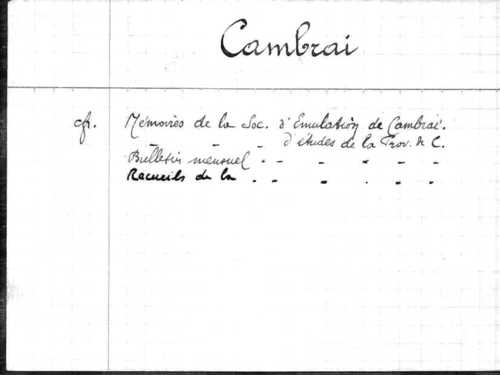 Cambrai
cfr. Mémoires de la Soc. d'Emulation de Cambrai.
" " " d'études de la Prov. de C.
Bulletin mensuel " " " " " "
Recueils de la " " " " " "